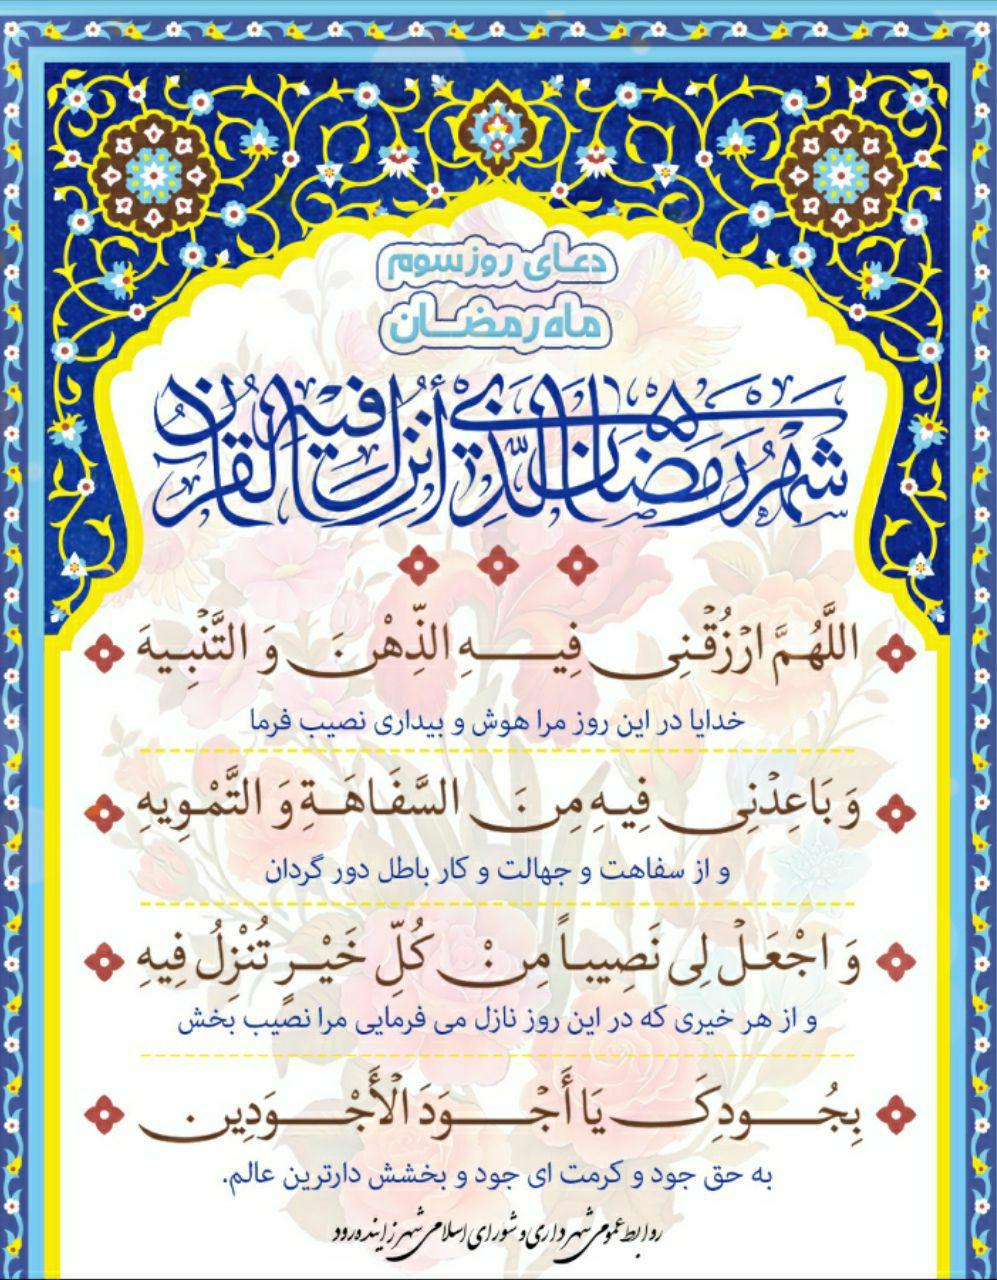 دعای روز سوم
ماه رمضان
شَهْرُ رَمَضَانَ الَّذِي أُنْزِلَ فِيهِ الْقُرْآنُ
اللَّهُمَّ ارْزُقْنِي فِيهِ الذِّهْنَ وَ التَّنْبِيهَ
خدایا در این روز مرا هوش و بیداری نصیب فرما
وَ بَاعِدْنِي فِيهِ مِنَ السَّفَاهَةِ وَ التَّمْوِيهِ
و از سفاهت و جهالت و کار باطل دور گردان
وَ اجْعَلْ لِي نَصِيباً مِنْ كُلِّ خَيْرٍ تُنْزِلُ فِيهِ
و از هر خیری که در این روز نازل می فرمایی مرا نصیب بخش
بِجُودِكَ يَا أَجْوَدَ الْأَجْوَدِينَ
به حق جود و کرمت ای جود و بخشش دارترین عالم.
روابط عمومی شهرداری و شورای اسلامی شهر زاینده‌رود